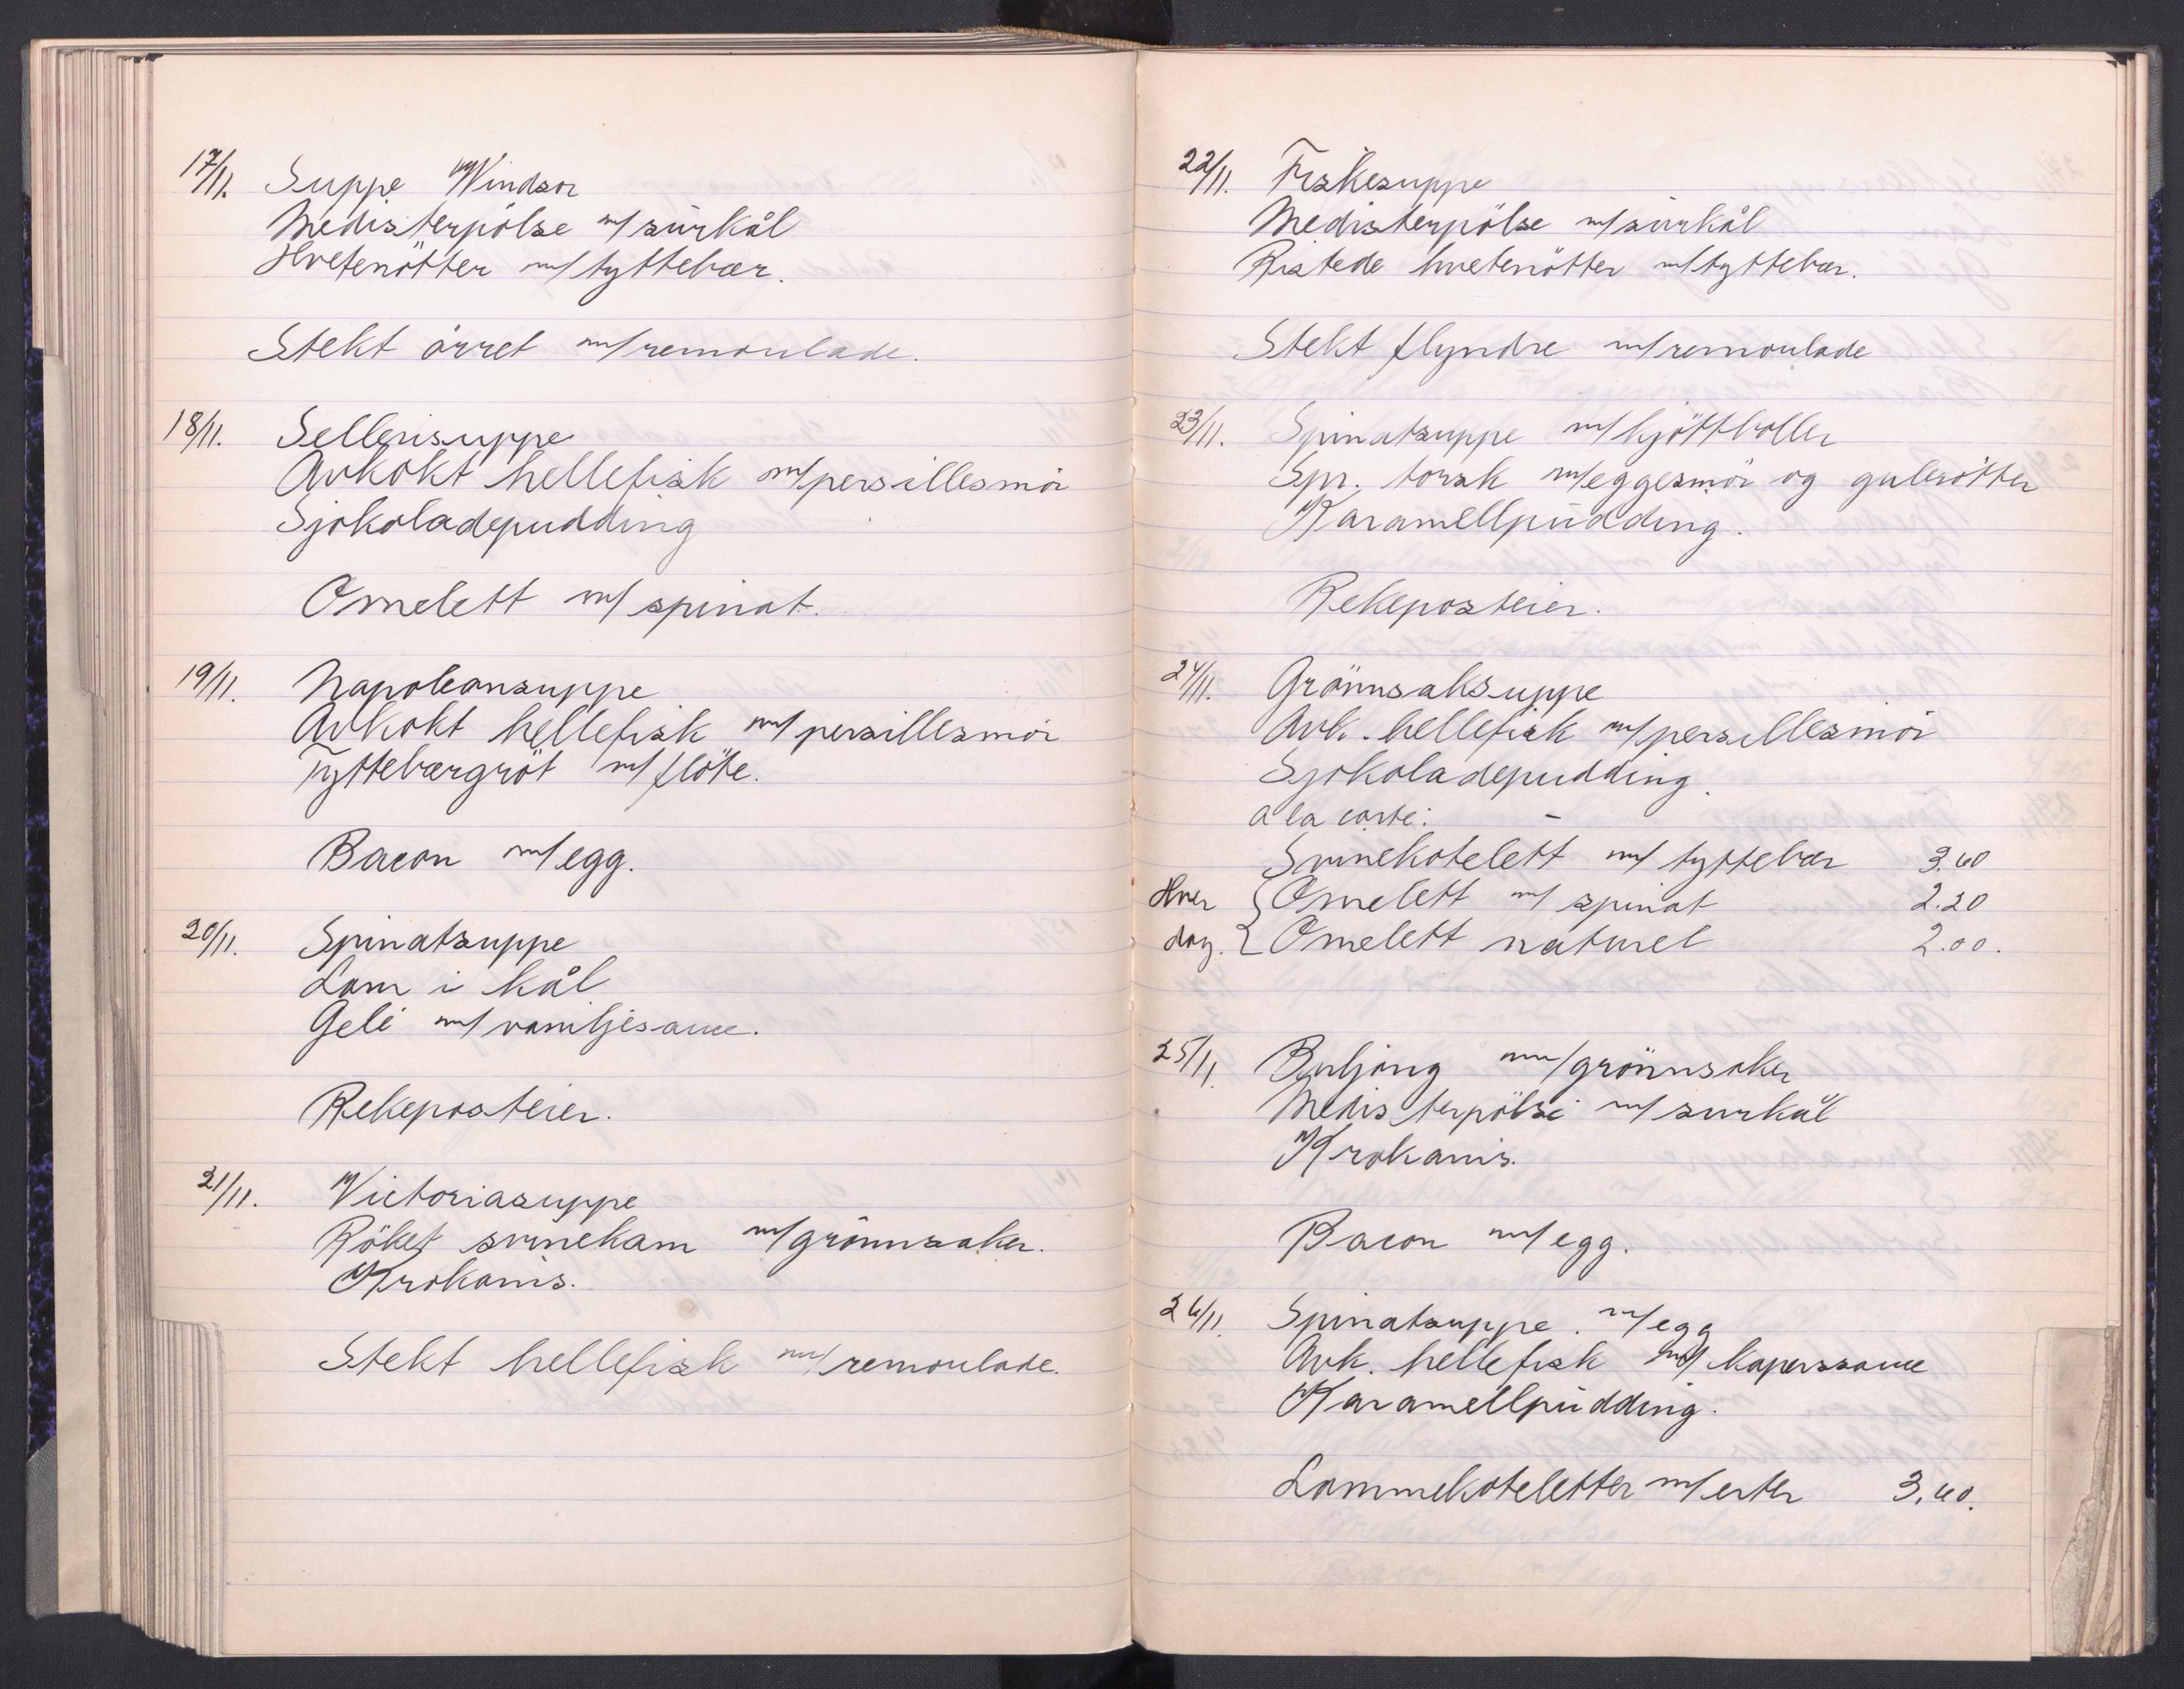 17/11. Suppe Windsor
Medisterpölse m/surkål
Hvetenötter m/tyttebær.
Stekt örret m/remoulade.
18/11. Sellerisuppe
Avkokt hellefisk m/persillesmör
Sjokoladepudding
Omelett m/spinat.
19/11. Napoleonsuppe
Avkokt hellefisk m/persillesmör
Tyttebærgröt m/flöte.
Bacon m/egg.
20/11. Spinatsuppe
Lam i kål
Gele m/vaniljesauce.
Rekeposteier.
21/11. Victoriasuppe
Röket svinekam m/grönnsaker.
Krokanis.
Stekt hellefisk m/remoulade.
22/11. Fiskesuppe
Medisterpölse m/surkål
Ristede hvetenötter m/tyttebær.
Stekt flyndre m/remoulade
23/11. Spinatsuppe m/kjöttboller
Spr. torsk m/eggesmör og gulerötter
Karamellpudding.
Rekeposteier.
24/11. Grönnsaksuppe
Avk. hellefisk m/persillesmör
Sjokoladepudding.
a la carte: –
Svinekotelett m/tyttebær 3.60
Hver { Omelett m/ spinat 2.20
dag. { Omelett naturel 2.00.
25/11. Buljong m/grönnsaker
Medisterpölse m/surkål
Krokanis.
Bacon m/egg.
26/11. Spinatsuppe. m/egg
Avk. hellefisk m/ kaperssauce
Karamellpudding.
Lammekoteletter m/erter 3.60.